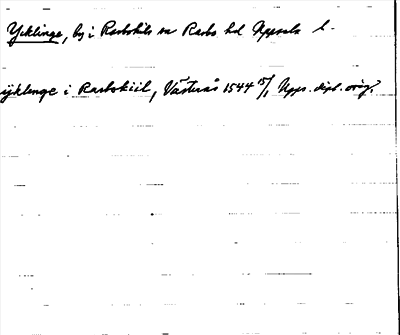 Ycklinge, by i Rasbokils sn Rasbo hd Uppsala l.
ijklenge i Rasbokiil, Västerås 1544 15/1 Upps. dipl. orig.